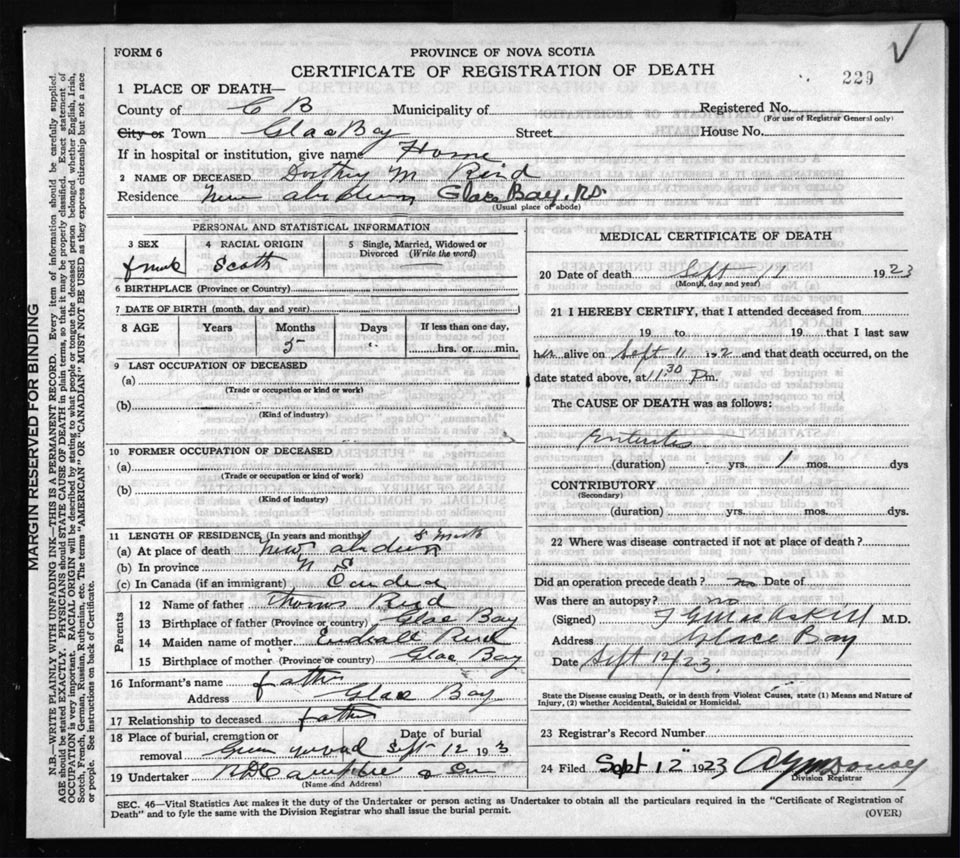 FORM 6
PROVINCE OF NOVA SCOTIA
CERTIFICATE OF REGISTRATION OF DEATH
229
1 PLACE OF DEATH—
County of C B Municipality of
Registered No.
(For use of Registrar General only)
City or Town Glace Bay Street
House No.
If in hospital or institution, give name Home
2 NAME OF DECEASED Dorthy M Reid
Residence New aberdeen Glace Bay, NS.
(Usual place of abode)
PERSONAL AND STATISTICAL INFORMATION
3 SEX
4 RACIAL ORIGIN
5 Single, Married, Widowed or Divorced (Write the word)
female Scotth
6 BIRTHPLACE (Province or Country)
7 DATE OF BIRTH (month, day and year)
8 AGE Years Months Days If less than one day,
5
hrs. or min.
9 LAST OCCUPATION OF DECEASED
(a)
(Trade or occupation or kind or work)
(b)
(Kind of industry)
10 FORMER OCCUPATION OF DECEASED
(a)
(Trade or occupation or kind or work)
(b)
(Kind of industry)
11 LENGTH OF RESIDENCE (In years and months) 5 Month
(a) At place of death New aberdeen
(b) In province N S
(c) In Canada (if an immigrant) Canada
Parents
12 Name of father Thomas Reid
13 Birthplace of father (Province or country) Glace Bay
14 Maiden name of mother Reid
15 Birthplace of mother (Province or country) Glace Bay
16 Informant's name father
Address Glace Bay
17 Relationship to deceased father
18 Place of burial, cremation or removal Green wood
Date of burial Sept 12 1923
19 Undertaker
(Name and Address)
MEDICAL CERTIFICATE OF DEATH
20 Date of death Sept 11 1923
(Month, day and year)
21 I HEREBY CERTIFY, that I attended deceased from
19 to 19 that I last saw
her alive on Sept 11 192 and that death occurred, on the
date stated above, at 11 30 P.m.
The CAUSE OF DEATH was as follows:
Enteritis
(duration) yrs. 1 mos. dys
CONTRIBUTORY
(Secondary)
(duration) yrs. mos. dys
22 Where was disease contracted if not at place of death?
Did an operation precede death? no Date of
Was there an autopsy? no
(Signed) M.D.
Address Glace Bay
Date Sept 12/23
State the Disease causing Death, or in death from Violent Causes, state (1) Means and Nature of
Injury, (2) whether Accidental, Suicidal or Homicidal.
23 Registrar's Record Number
24 Filed Sept 12 1923
Division Registrar
SEC. 46—Vital Statistics Act makes it the duty of the Undertaker or person acting as Undertaker to obtain all the particulars required in the "Certificate of Registration of
Death" and to fyle the same with the Division Registrar who shall issue the burial permit.
(OVER)
MARGIN RESERVED FOR BINDING
N.B.—WRITE PLAINLY WITH UNFADING INK—THIS IS A PERMANENT RECORD. Every item of information should be carefully supplied.
AGE should be stated EXACTLY. PHYSICIANS should STATE CAUSE OF DEATH in plain terms, so that it may be properly classified. Exact statement of
OCCUPATION is very important. RACIAL ORIGIN will be described by stating to what people or tongue the deceased person belonged whether English, Irish,
Scotch, French, German, Russian, Ruthenian, etc. The terms "AMERICAN" OR "CANADIAN" MUST NOT BE USED as they express citizenship but not a race
or people. See instructions on back of Certificate.